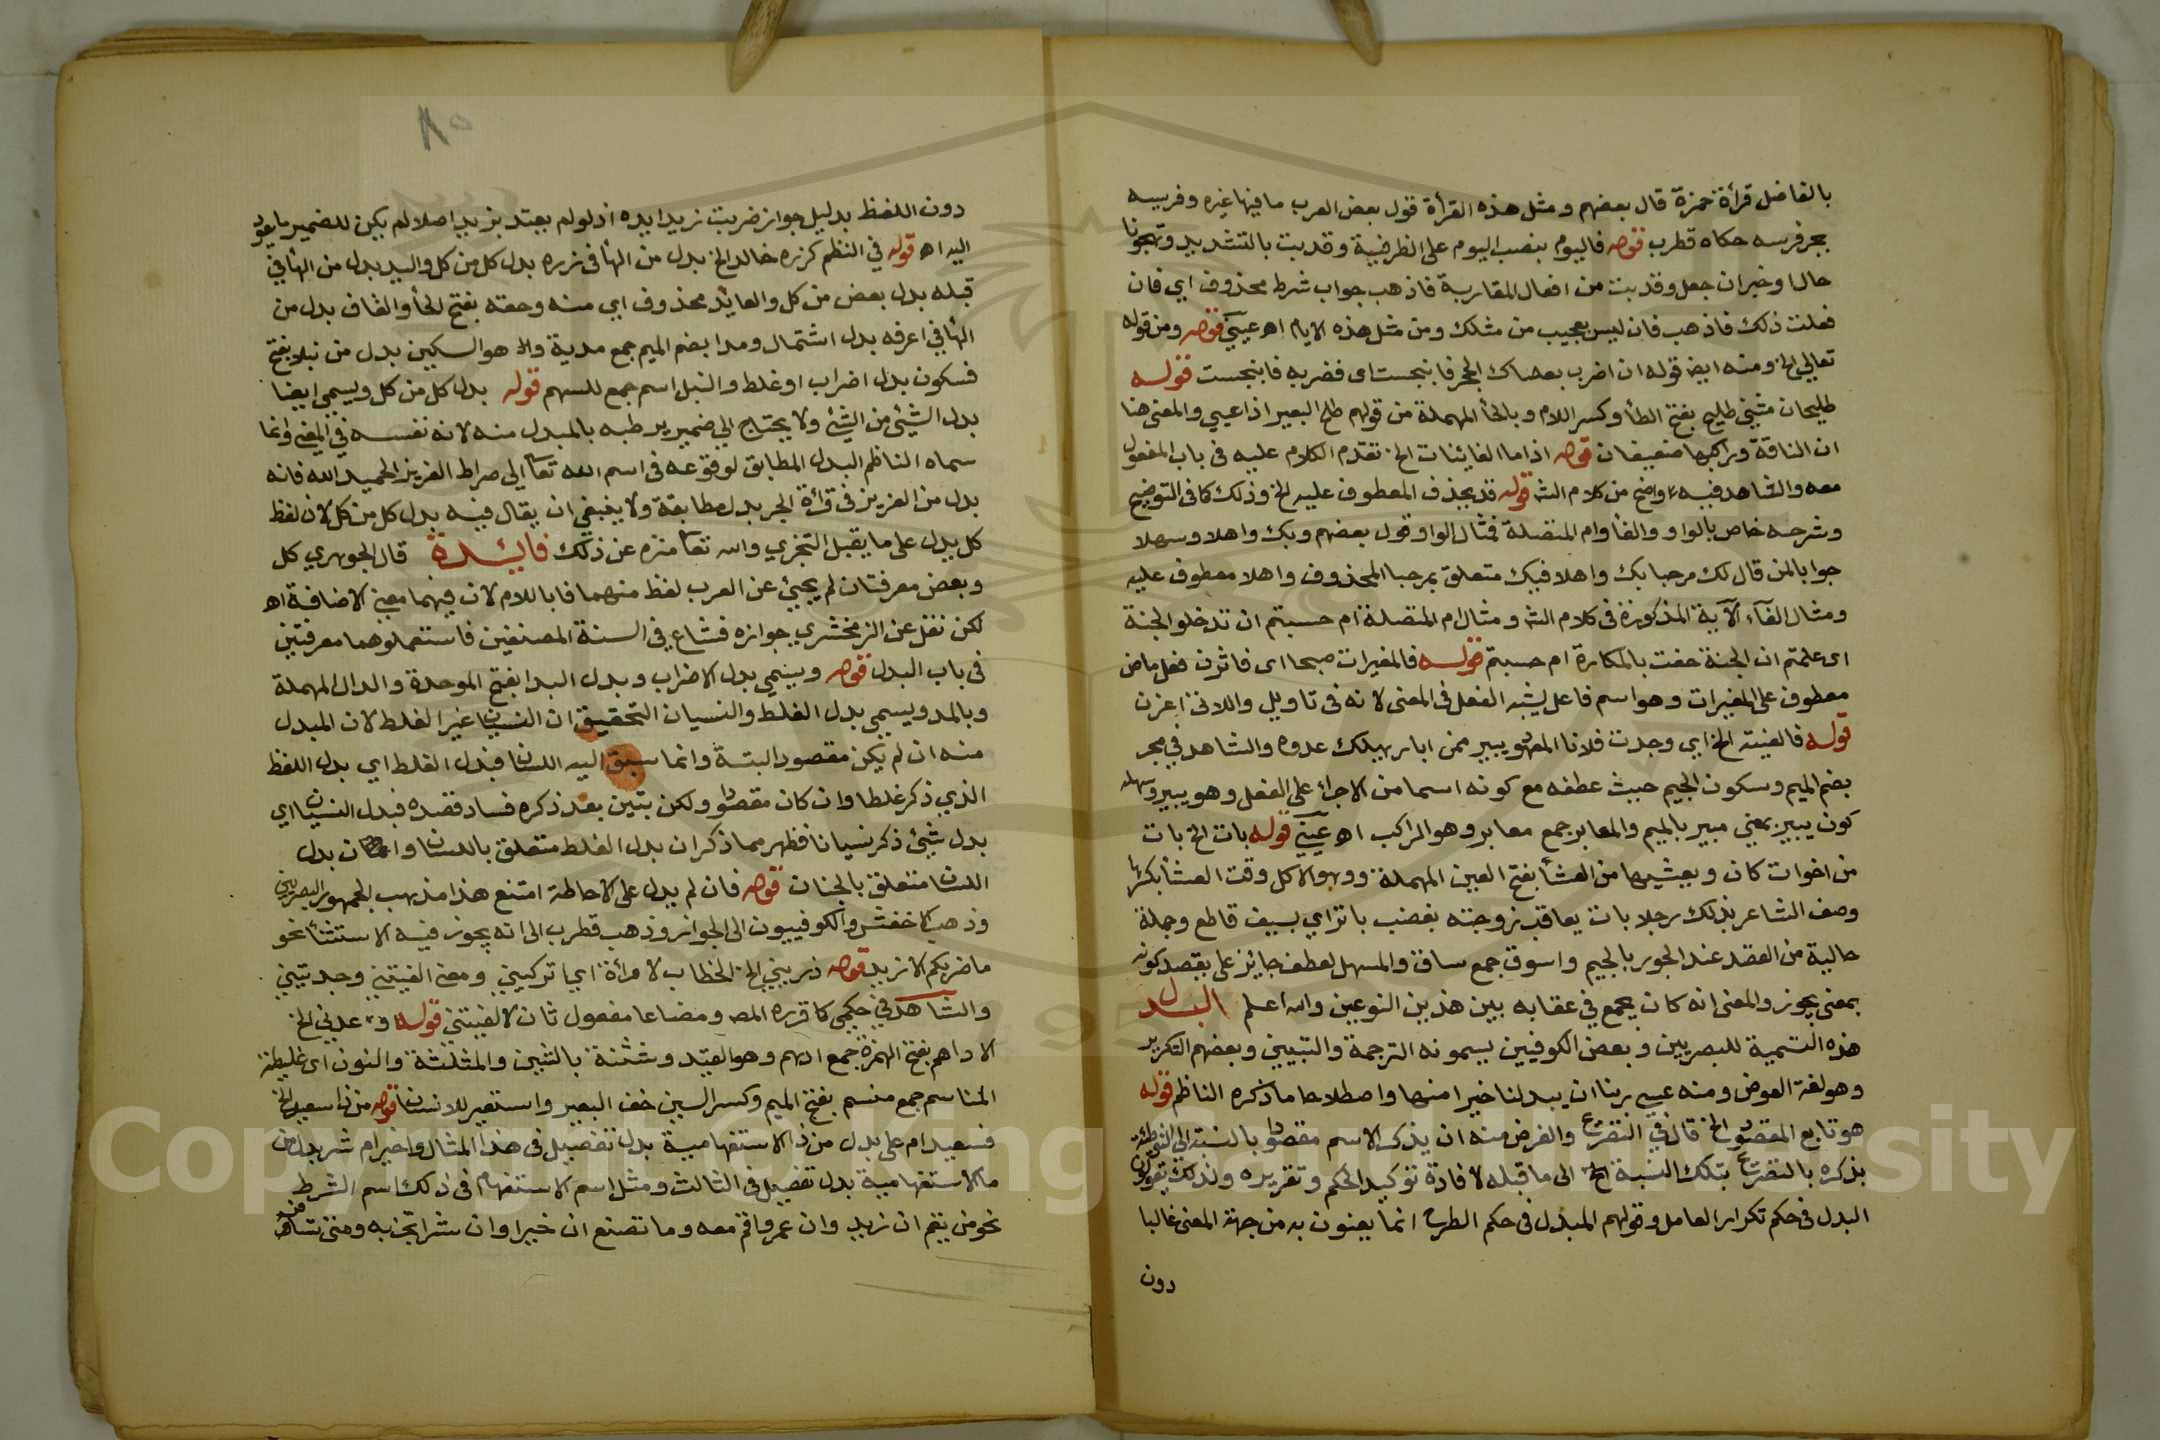 بالفاضل قرأة حمزة قال بعضهم ومثل هذه القرأة قول بعض العرب ما فيها غيره وفرسه
بجر فرسه حكاه قطرب قوله فاليوم بنصب اليوم على الظرفية وقدبت بالتشديد وتهجونا
حال اوخبران جعل وقدبت من افعال المقاربة فاذهب جواب شرط محذوف اي فان
فعلت ذلك فاذهب فان ليس بعجيب من مثلك ومن مثل هذه الايام اهـ عيني قوله ومن قوله
تعالى الخ ومنه ايض قوله ان اضرب بعصاك الحجر فانبجست اى فضربه فانبجست قوله
طليحان مثنى طليح بفتح الطأ وكسر اللام وبالحأ المهملة من قولهم طلح البعير اذا عيي والمعنى هنا
ان الناقة وراكبها ضعيفان قوله اذا ما الغانيات الخ تقدم الكلام عليه فى باب المفعول
معه والشاهد فيه واضح من كلام الشـ قوله قد يحذف المعطوف عليه الخ وذلك كما فى التوضيح
وشرحه خاص بالواو والفأ وام المتصلة فمثال الواو قول بعضهم وبك واهلا وسهلا
جوابا لمن قال لك مرحبا بك واهلا فبك متعلق بمرحبا المحذوف واهلا معطوف عليه
ومثال الفآء الآية المذكورة فى كلام الشـ ومثال ام المتصلة ام حسبتم ان تدخلو الجنة
اى علمتم ان الجنة حفت بالمكارة ام حسبتم قوله فالمغيرات صبحا اى فاثرن فعل ماض
معطوف على المغيرات وهو اسم فاعل يشبه الفعل فى المعنى لانه فى تاويل واللاتى اغرن
قوله فالفيته الخ اي وجدت فلانا المعهود يبير ممن ابار يهلك عدوه والشاهد في مجر
بضم الميم وسكون الجيم حيث عطفه مع كونه اسما من الاجرأ على الفعل وهو يبير وسهله
كون يبير بمعني مبير بالميم والمعابر جمع معابر وهو المراكب اهـ عيني قوله بات الخ بات
من اخوات كان ويعشيها من العشأ بفتح العين المهملة وهو الاكل وقت العشأ بكسرها
وصف الشاعر بذلك رجلا بات يعاقب زوجته بعضب باتر اي بسيف قاطع وجملة
حالية من القصد عند الجور بالجيم واسوق جمع ساق والمسهل لعطف جايز على يقصد كونه
بمعنى يجوز والمعنى انه كان يجمع في عقابه بين هذين النوعين والله اعلم البدل
هذه التسمية للبصريين وبعض الكوفيين يسمونه الترجمة والتبيين وبعضهم التكرير
وهو لغة العوض ومنه عسى ربنا ان يبدلنا خيرا منها واصطلاحا ما ذكره الناظم قوله
هو تابع المقصود الخ قال في التصريح والغرض منه ان يذكر الاسم مقصودا بالنسبة الى التوطئة
بذكره بالتصريح بتلك النسبة الخ الى ما قبله لافادة توكيد الحكم وتقريره ولذلك تقول ان
البدل فى حكم تكرار العامل وقولهم المبدل فى حكم الطرح انما يعنون به من جهة المعنى غالبا
دون
٨٥
دون اللفظ بدليل جواز ضربت زيدا يده اذ لو لم يعتد بزيد اصلا لم يكن للضمير ما يعود
اليه اهـ قوله في النظم كزره خالدا الخ بدل من الهأ فى زره بدل كل من كل واليد بدل من الهأ في
قبله بدل بعض من كل والعائد محذوف اي منه وحقه بفتح الحأ والقاف بدل من
الهأ في اعرفه بدل اشتمال ومدا بضم الميم جمع مدية والـ هو السكين بدل من نبلا بفتح
فسكون بدل اضراب او غلط والنبل اسم جمع للسهم قوله بدل كل من كل ويسمى ايضا
بدل الشيئ من الشيئ ولا يحتاج الى ضمير يربطه بالمبدل منه لانه نفسه في المعنى وانما
سماه الناظم البدل المطابق لوقوعه فى اسم الله تعا الى صراط العزيز الحميد الله فانه
بدل من العزيز فى قرأة الجر بدل مطابقة ولا ينبغي ان يقال فيه بدل كل من كل لان لفظ
كل يدل على ما يقبل التجزي والله تعا منزه عن ذلك فايدة قال الجوهري كل
وبعض معرفتان لم يجئ عن العرب لفظ منهما فا باللام لان فيهما معنى الاضافة اهـ
لكن نقل عن الزمخشري جوازه فشاع في السنة المصنفين فاستعملوهما معرفتين
فى باب البدل قوله ويسمي بدل الاضراب وبدل البدا بفتح الموحدة والدال المهملة
وبالمد ويسمى بدل الغلط والنسيان التحقيق ان النسيان غير الغلط لان المبدل
منه ان لم يكن مقصود البتة وانما سبق اليه اللسان فبدل الغلط اي بدل اللفظ
الذي ذكر غلطا وان كان مقصودا ولكن بتين بعد ذكره فساد قصده فبدل النسيان اي
بدل شيئ ذكر نسيانا فظهر مما ذكر ان بدل الغلط متعلق باللسان وان بدل
النسيان متعلق بالجنان قوله فان لم يدل على الاحاطة امتنع هذا مذهب الجمهور البصريين
وذهب الاخفش والكوفييون الى الجواز وذهب قطرب الى انه يجوز فيه الاستثنأ نحو
ما ضربكم الا زيد قوله ذريني الخ الخطاب لامرأة اي اتركيني ومعنى الفيتني وجدتيني
والشاهد في حكمى كما قرره المصـ ومضاعا مفعول ثان لالفيتني قوله وعدني الخ
الاداهم بفتح الهمزة جمع ادهم وهو القيد وشثنة بالشين والمثلثة والنون اى غليظة
المناسم جمع منسم بفتح الميم وكسر السين خف البعير واستعير للانسان قوله من ذا سعيد الخ
فسعيد ام على بدل من ذا الاستفهامية بدل تفصيل فى هذا المثال واخير ام شر بدل من
ما الاستفهامية بدل تفصيل فى الثالث ومثل اسم الاستفهام فى ذلك اسم الشرط
نحو من يقم ان زيد وان عمرو اقم معه وما تصنع ان خيرا وان شرا تجز به ومتى تسافر
Copyright © King Saud University
1957